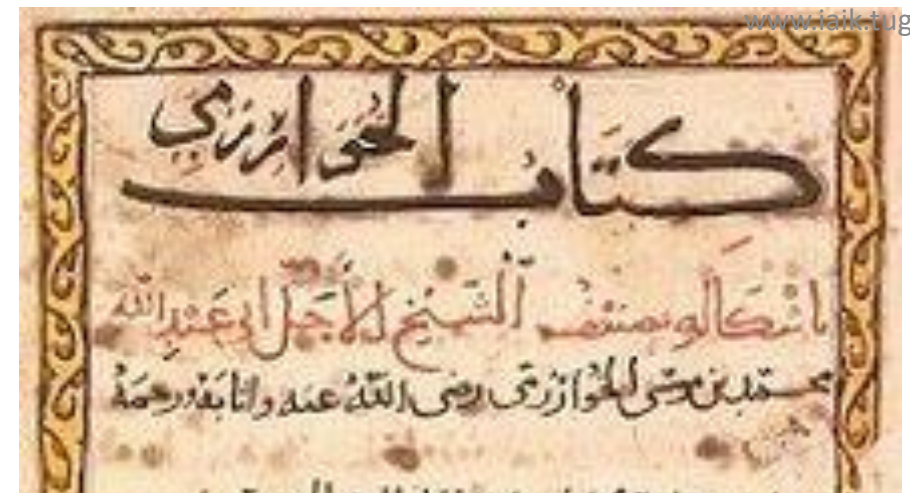 www.iaik.tug
كتاب الخوارزمي
باشكاله تصنيف الشيخ الأجل ابي عبد الله
محمد بن موسى الخوارزمي رضى الله عنه واثابه ورحمة